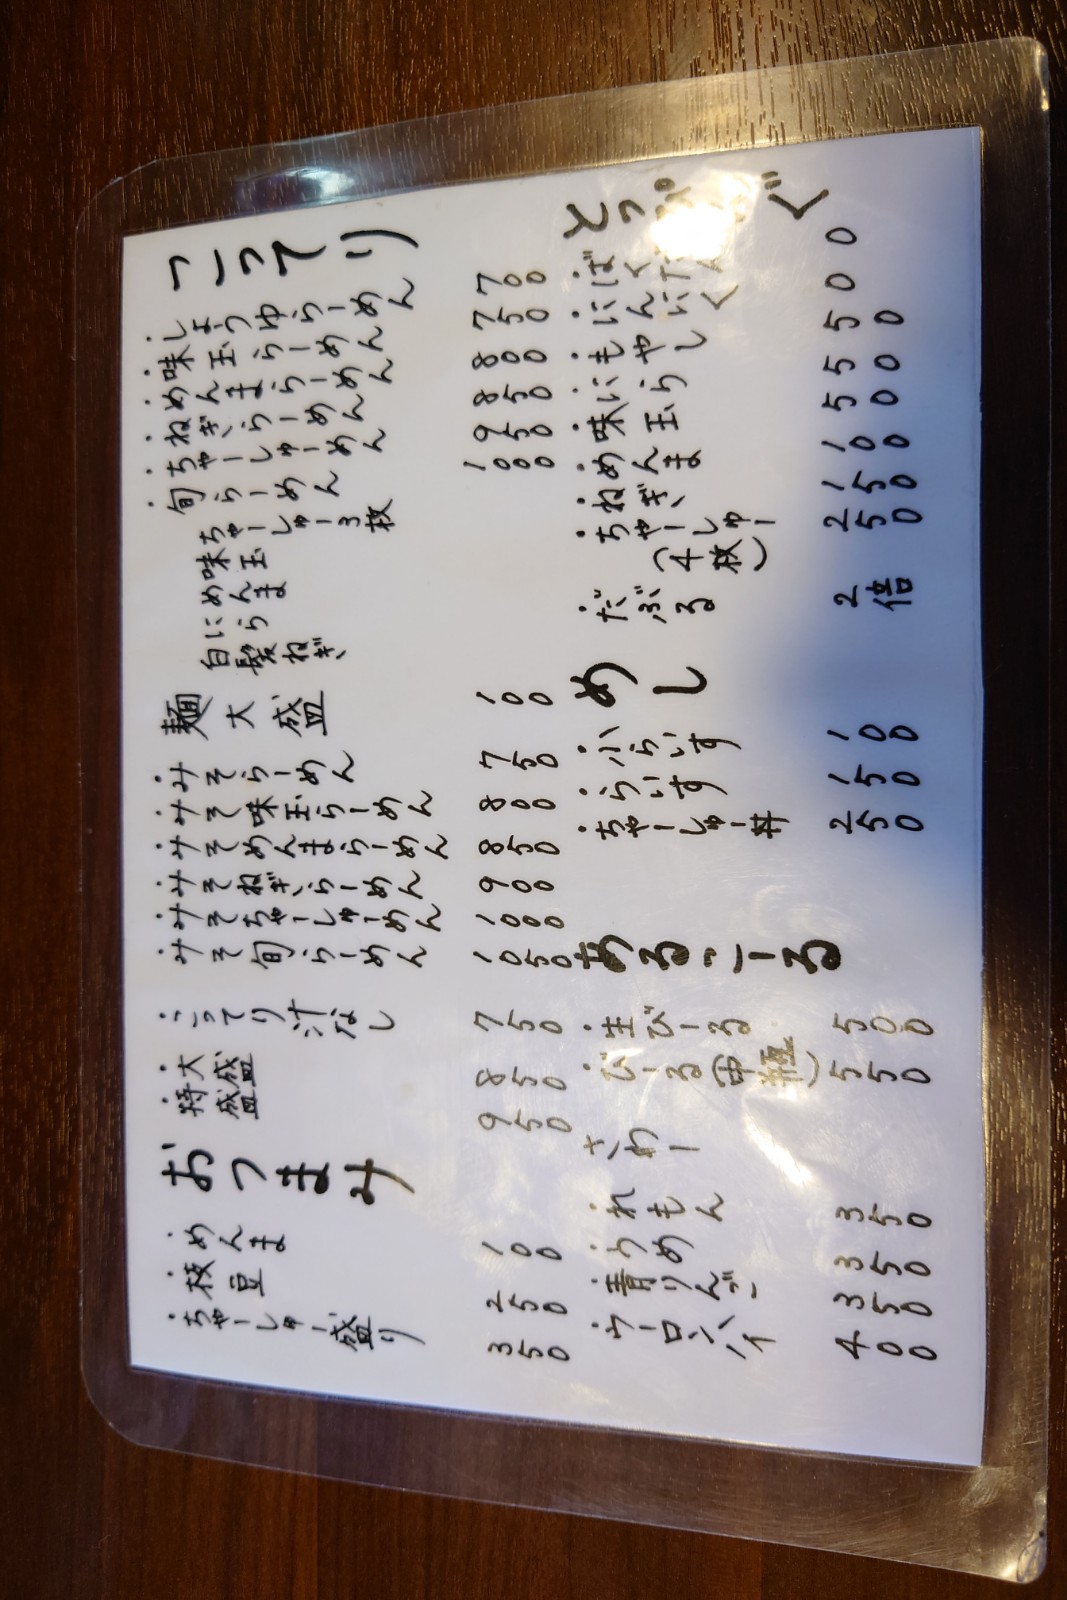 こってり
・しょうゆらーめん 700
・味玉らーめん 750
・めんまらーめん 800
・ねぎらーめん 850
・ちゃーしゅーめん 950
・旬らーめん 1000
ちゃーしゅー3枚
味玉
めんま
にら
白髪ねぎ
麺大盛 100
・みそらーめん 750
・みそ味玉らーめん 800
・みそめんまらーめん 850
・みそねぎらーめん 900
・みそちゃーしゅーめん 1000
・みそ旬らーめん 1050
・こってり汁なし 750
・大盛 850
・特盛 950
おつまみ
・めんま 100
・枝豆 250
・ちゃーしゅー盛り 350
とっぴんぐ
・ばくだん 0
・にんにく 0
・もやし 50
・にら 50
・味玉 50
・めんま 100
・ねぎ 150
・ちゃーしゅー 250
(4枚)
・だぶる 2倍
めし
・小らいす 100
・らいす 150
・ちゃーしゅー丼 250
あるこーる
・生びーる 500
・びーる(中瓶) 550
さわー
・れもん 350
・うめ 350
・青りんご 350
・ウーロンハイ 400